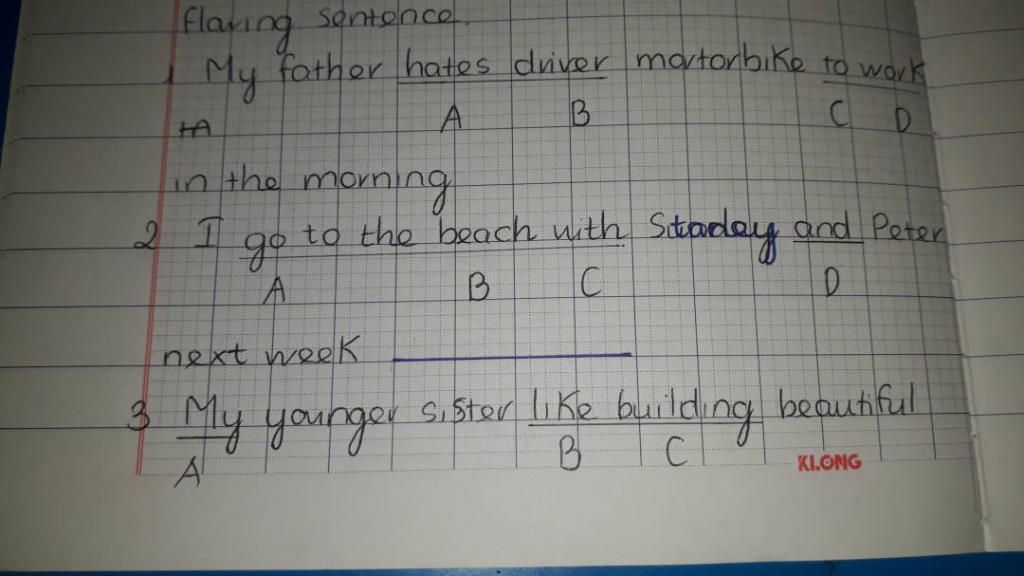 flaring sentence.
1 My father hates driver mortorbike to work
A B C D
in the morning
2 I go to the beach with and Peter
A B C D
next week
3 My younger sister like building beautiful
A B C
KLONG